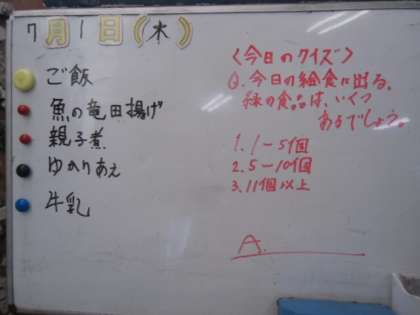 7月1日(木)
ご飯
魚の竜田揚げ
親子煮
ゆかりあえ
牛乳
<今日のクイズ>
Q.今日の給食に出る、
緑の食品は、いくつ
あるでしょう。
1.1〜5個
2.5〜10個
3.11個以上
A.